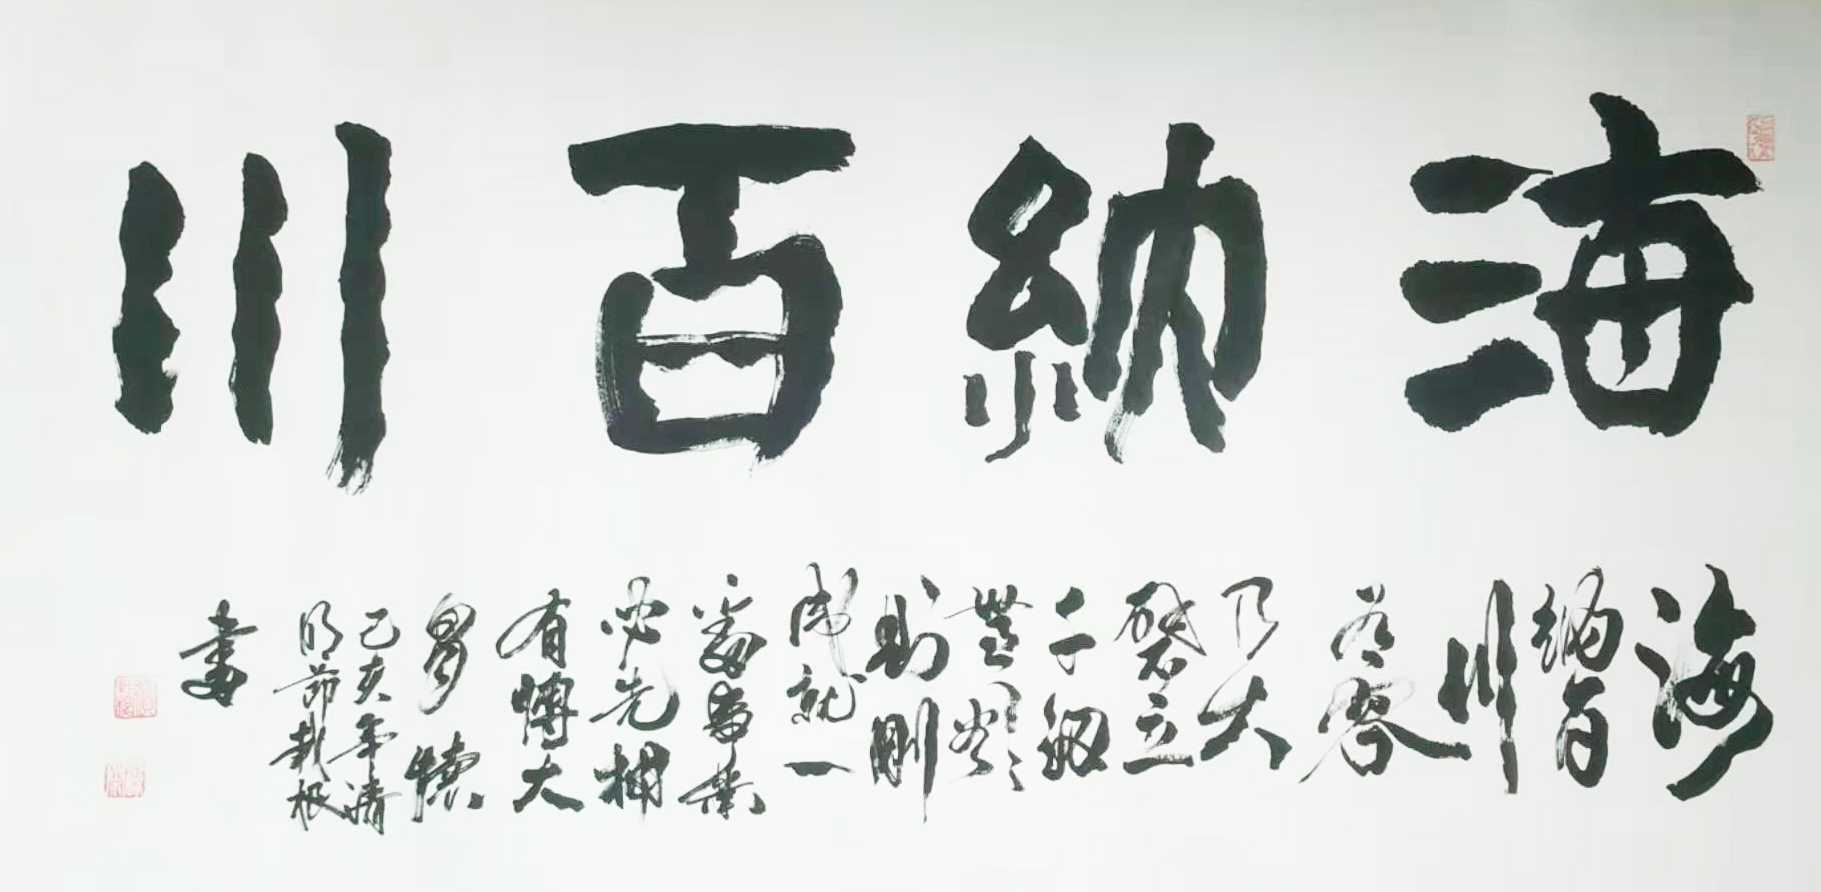 海納百川
海
納百
川
有容
乃大
壁立
千仞
無欲
則剛
成就一
番事業
必先拥
有博大
胸懷
己亥年清
明節栽根
書